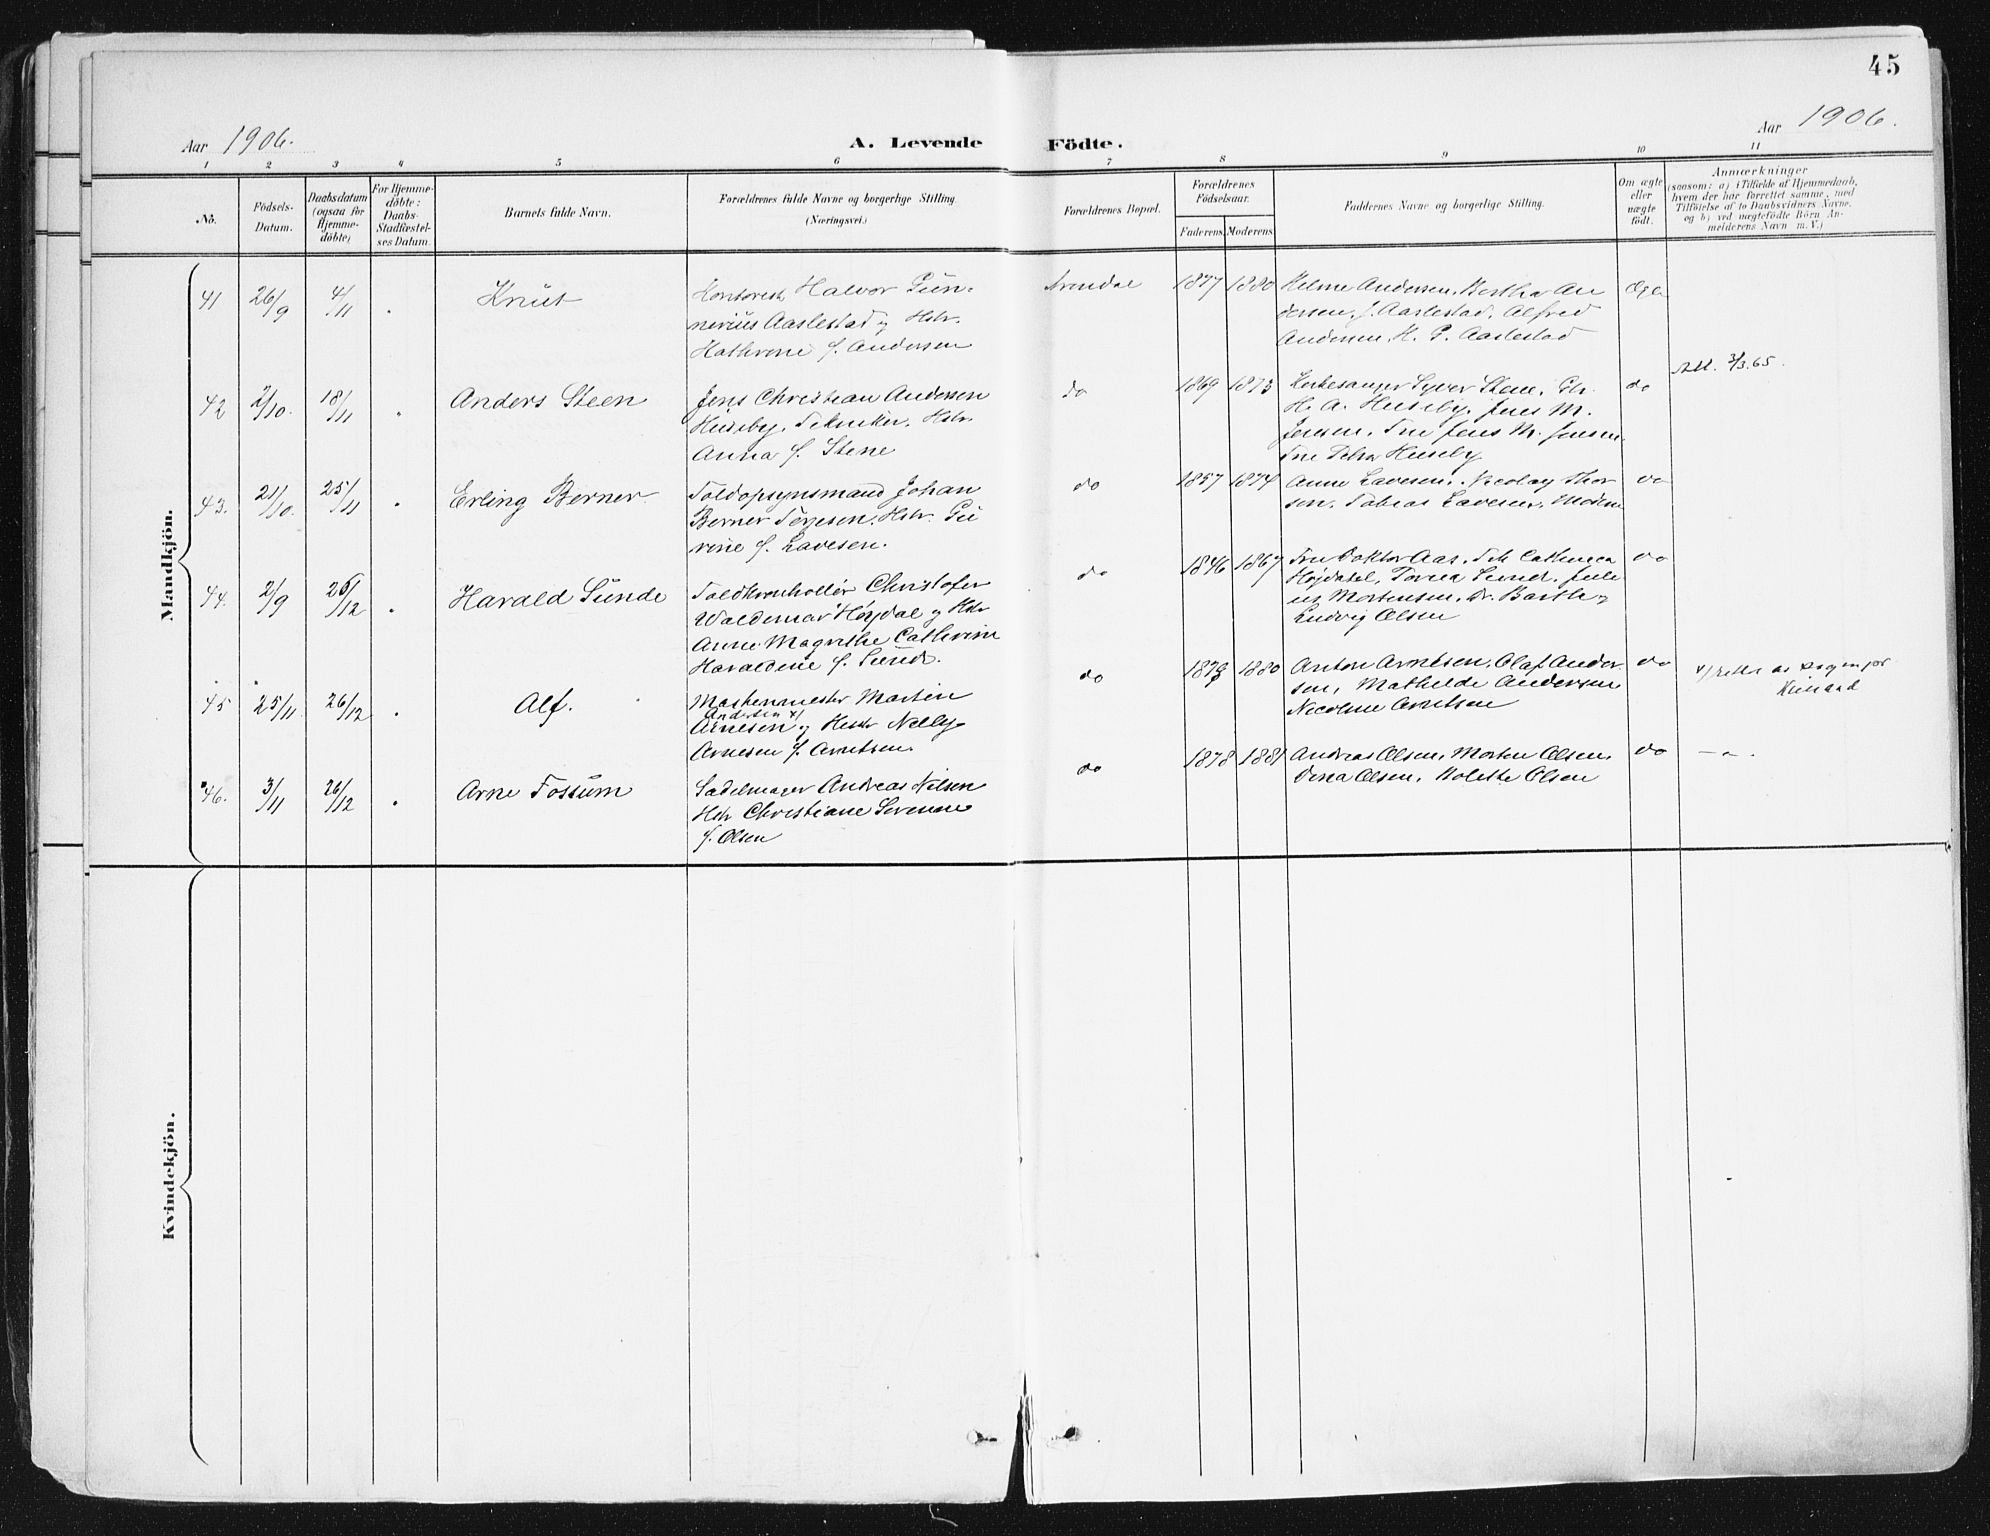 45
Aar 1906.
A. Levende Födte.
Aar 1906.
1 2 3 4 5 6 7 8 9 10 11
No.
Födsels-
Datum.
Daabsdatum
(ogsaa for
Hjemme-
döbte)
For Hjemme-
döbte:
Daabs-
Stadfæstel-
ses Datum.
Barnets fulde Navn.
Forældrenes fulde Navne og borgerlige Stilling
(Næringsvei.)
Forældrenes Bopæl.
Forældrenes
Födselsaar.
Faderens. Moderens.
Faddernes Navne og borgerlige Stilling.
Om ægte
eller
uægte
födt.
Anmærkninger
(saasom: a) i Tilfælde af Hjemmedaab,
hvem der har forrettet samme, med
Tilföielse af to Daabsvidners Navne,
og b) ved uægtefödte Börn An-
melderens Navn m. V.)
Mandkjön.
41 26/9 4/11 Knut
Kontorist Halvor Gun-
nerius Aaslestad og Hstr.
Kathrine f. Andersen
Arendal 1877 1880
Helme Andersen, Bertha An
dersen, J. Aaslestad, Alfred
Andersen, H. G. Aaslestad
Ægte
Att. 3/3.65.
42 2/10. 18/11 Anders Steen
Jens Christian Andersen
Huseby, Tekniker, Hstr.
Anna f. Stene
do 1869 1873
Kirkesanger Syver Stene,
H. A. Huseby, Jens M.
Jensen, Fru Jens M. Jensen
Fru Petra Huseby
do
43. 21/10. 25/11 Erling Berner
Toldopsynsmand Johan
Berner Terjesen, Hstr. Gu
rine f. Lavesen.
do 1857 1874
Anne Lavesen, Nicolay Thor
sen, Tobias Lavesen, Moderen
do
44. 2/9 26/12 Harald Sunde
Christofer
Waldemar Højdal og Hstr
Anne Magrethe Cathrine
Haraldine f. Sunde.
do 1846 1867
Fru Doktor Aas, Frk Cathinca
Højdahl, Sunde, Juli
us Mortensen, Dr. og
Ludvig Olsen
do
45 25/11 26/12 Alf.
Maskinmester Martin
Andersen x)
Arnesen og Hustr Nelly
Arnesen f. Arntsen.
do 1879 1880
Anton Arntsen, Olaf Ander
sen, Mathilde Andersen
Nicoline Arntsen
do
x) rettet av
46. 3/11 26/12 Arne Fossum
Sadelmager Andreas Nilsen
Hstr Christiane Severine
f. Olsen
do 1878 1881
Andreas Olsen, Morten Olsen,
Dina Olsen, Kolette Olsen
do
Kvindekjön.